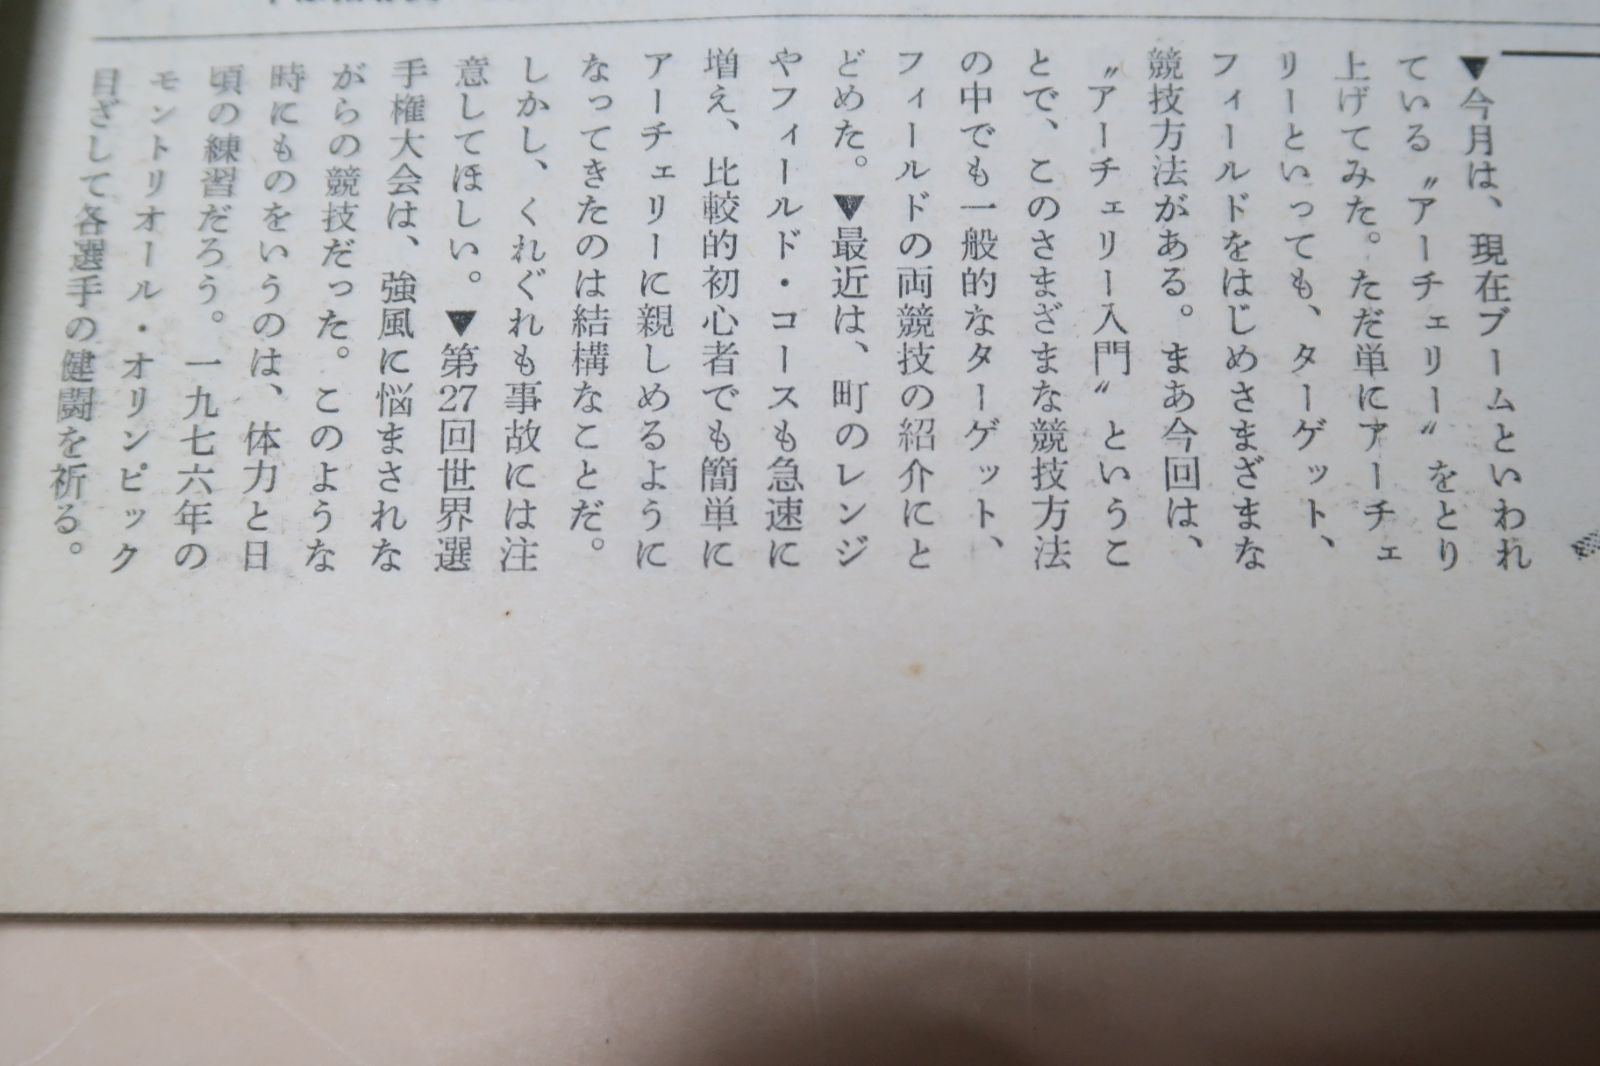 ▼今月は、現在ブームといわれ
ている〝アーチェリー〟をとり
上げてみた。ただ単にアーチェ
リーといっても、ターゲット、
フィールドをはじめさまざまな
競技方法がある。まあ今回は、
〝アーチェリー入門〟というこ
とで、このさまざまな競技方法
の中でも一般的なターゲット、
フィールドの両競技の紹介にと
どめた。▼最近は、町のレンジ
やフィールド・コースも急速に
増え、比較的初心者でも簡単に
アーチェリーに親しめるように
なってきたのは結構なことだ。
しかし、くれぐれも事故には注
意してほしい。▼第27回世界選
手権大会は、強風に悩まされな
がらの競技だった。このような
時にものをいうのは、体力と日
頃の練習だろう。一九七六年の
モントリオール・オリンピック
目ざして各選手の健闘を祈る。